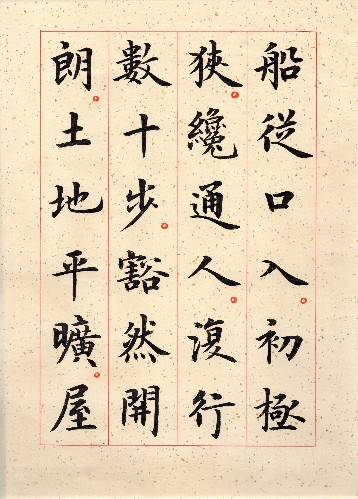 船從口入初極
狹纔通人復行
數十步豁然開
朗土地平曠屋